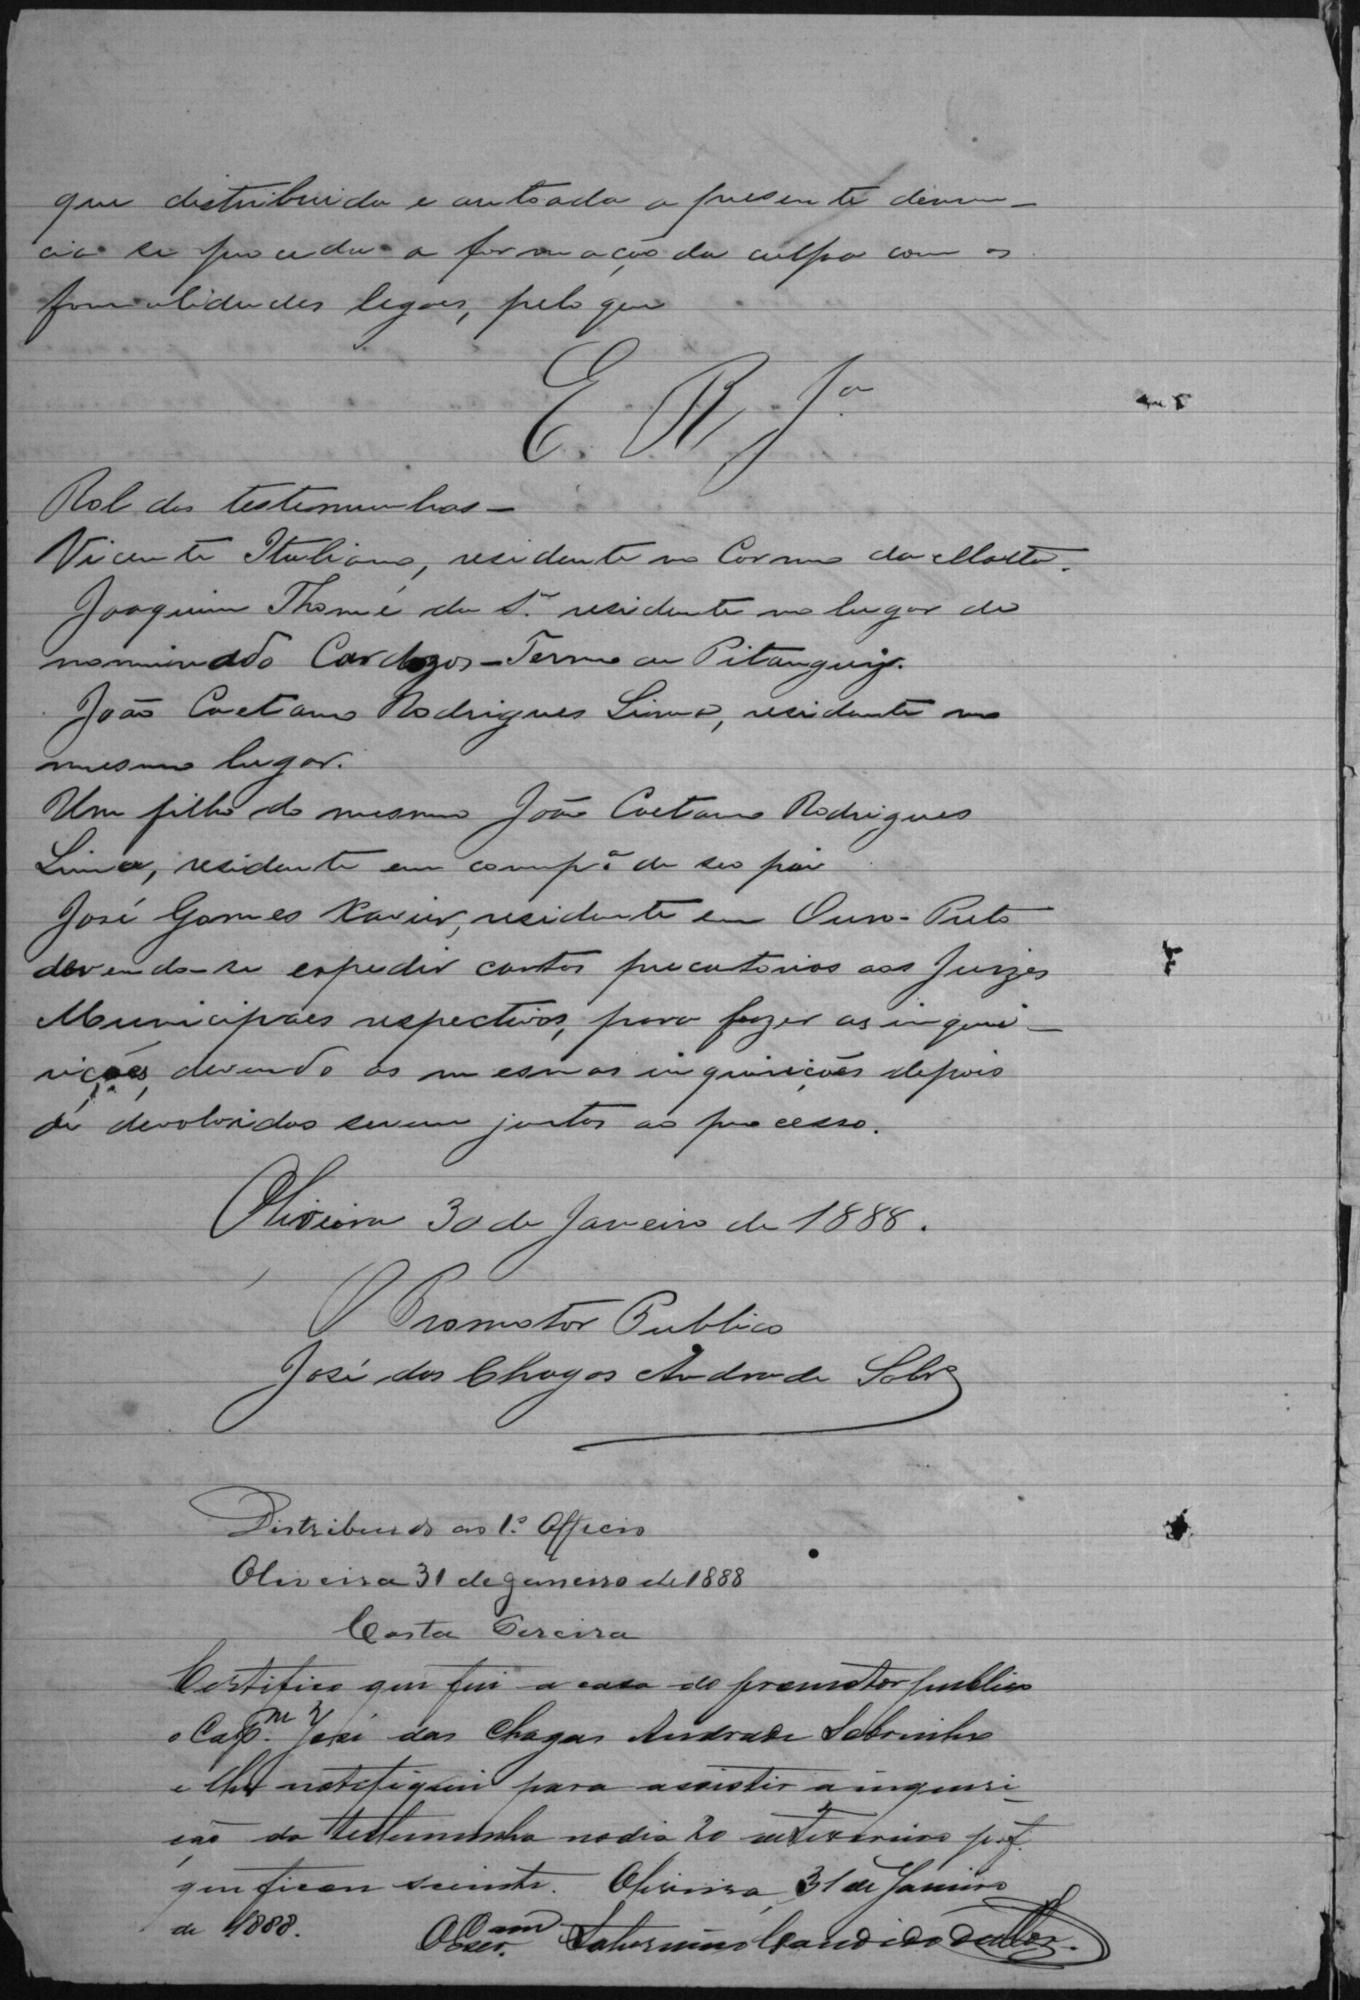 que distribuida e autoada a presente denun-
cia se proceda a formação da culpa com as
formalidades legaes, pelo que
E. R. J.ª
Rol das testemunhas-
Vicente Italiano, residente no Carmo da Matta.
Joaquim Thomé da S.ª residente no lugar de
nominado Cardozos - Termo de Pitanguy.
João Caetano Rodrigues Lima, residente no
mesmo lugar.
Um filho do mesmo João Caetano Rodrigues
Lima, residente em comp.ª de seo pai
José Gomes Xavier, residente em Ouro-Preto
devendo-se expedir cartas precatorias aos Juizes
Municipaes respectivos, para fazer as inqui-
rições, devendo as mesmas inquirições depois
de devolvidas serem juntas ao processo.
Oliveira 30 de Janeiro de 1888.
O Promotor Publico
José das Chagas Andrade Sobr.º
Distribuido ao 1.º Officio
Oliveira 31 de Janeiro de 1888
Costa Pereira
Certifico que fui a casa do promotor publico
o Cap.m José das Chagas Andrade Sobrinho
e lhe notifiquei para assistir a inquiri-
ção da testemunha no dia 20 de Fevereiro p.f.
que ficou sciente. Oliveira, 31 de Janeiro
de 1888.
Saturnino Candido